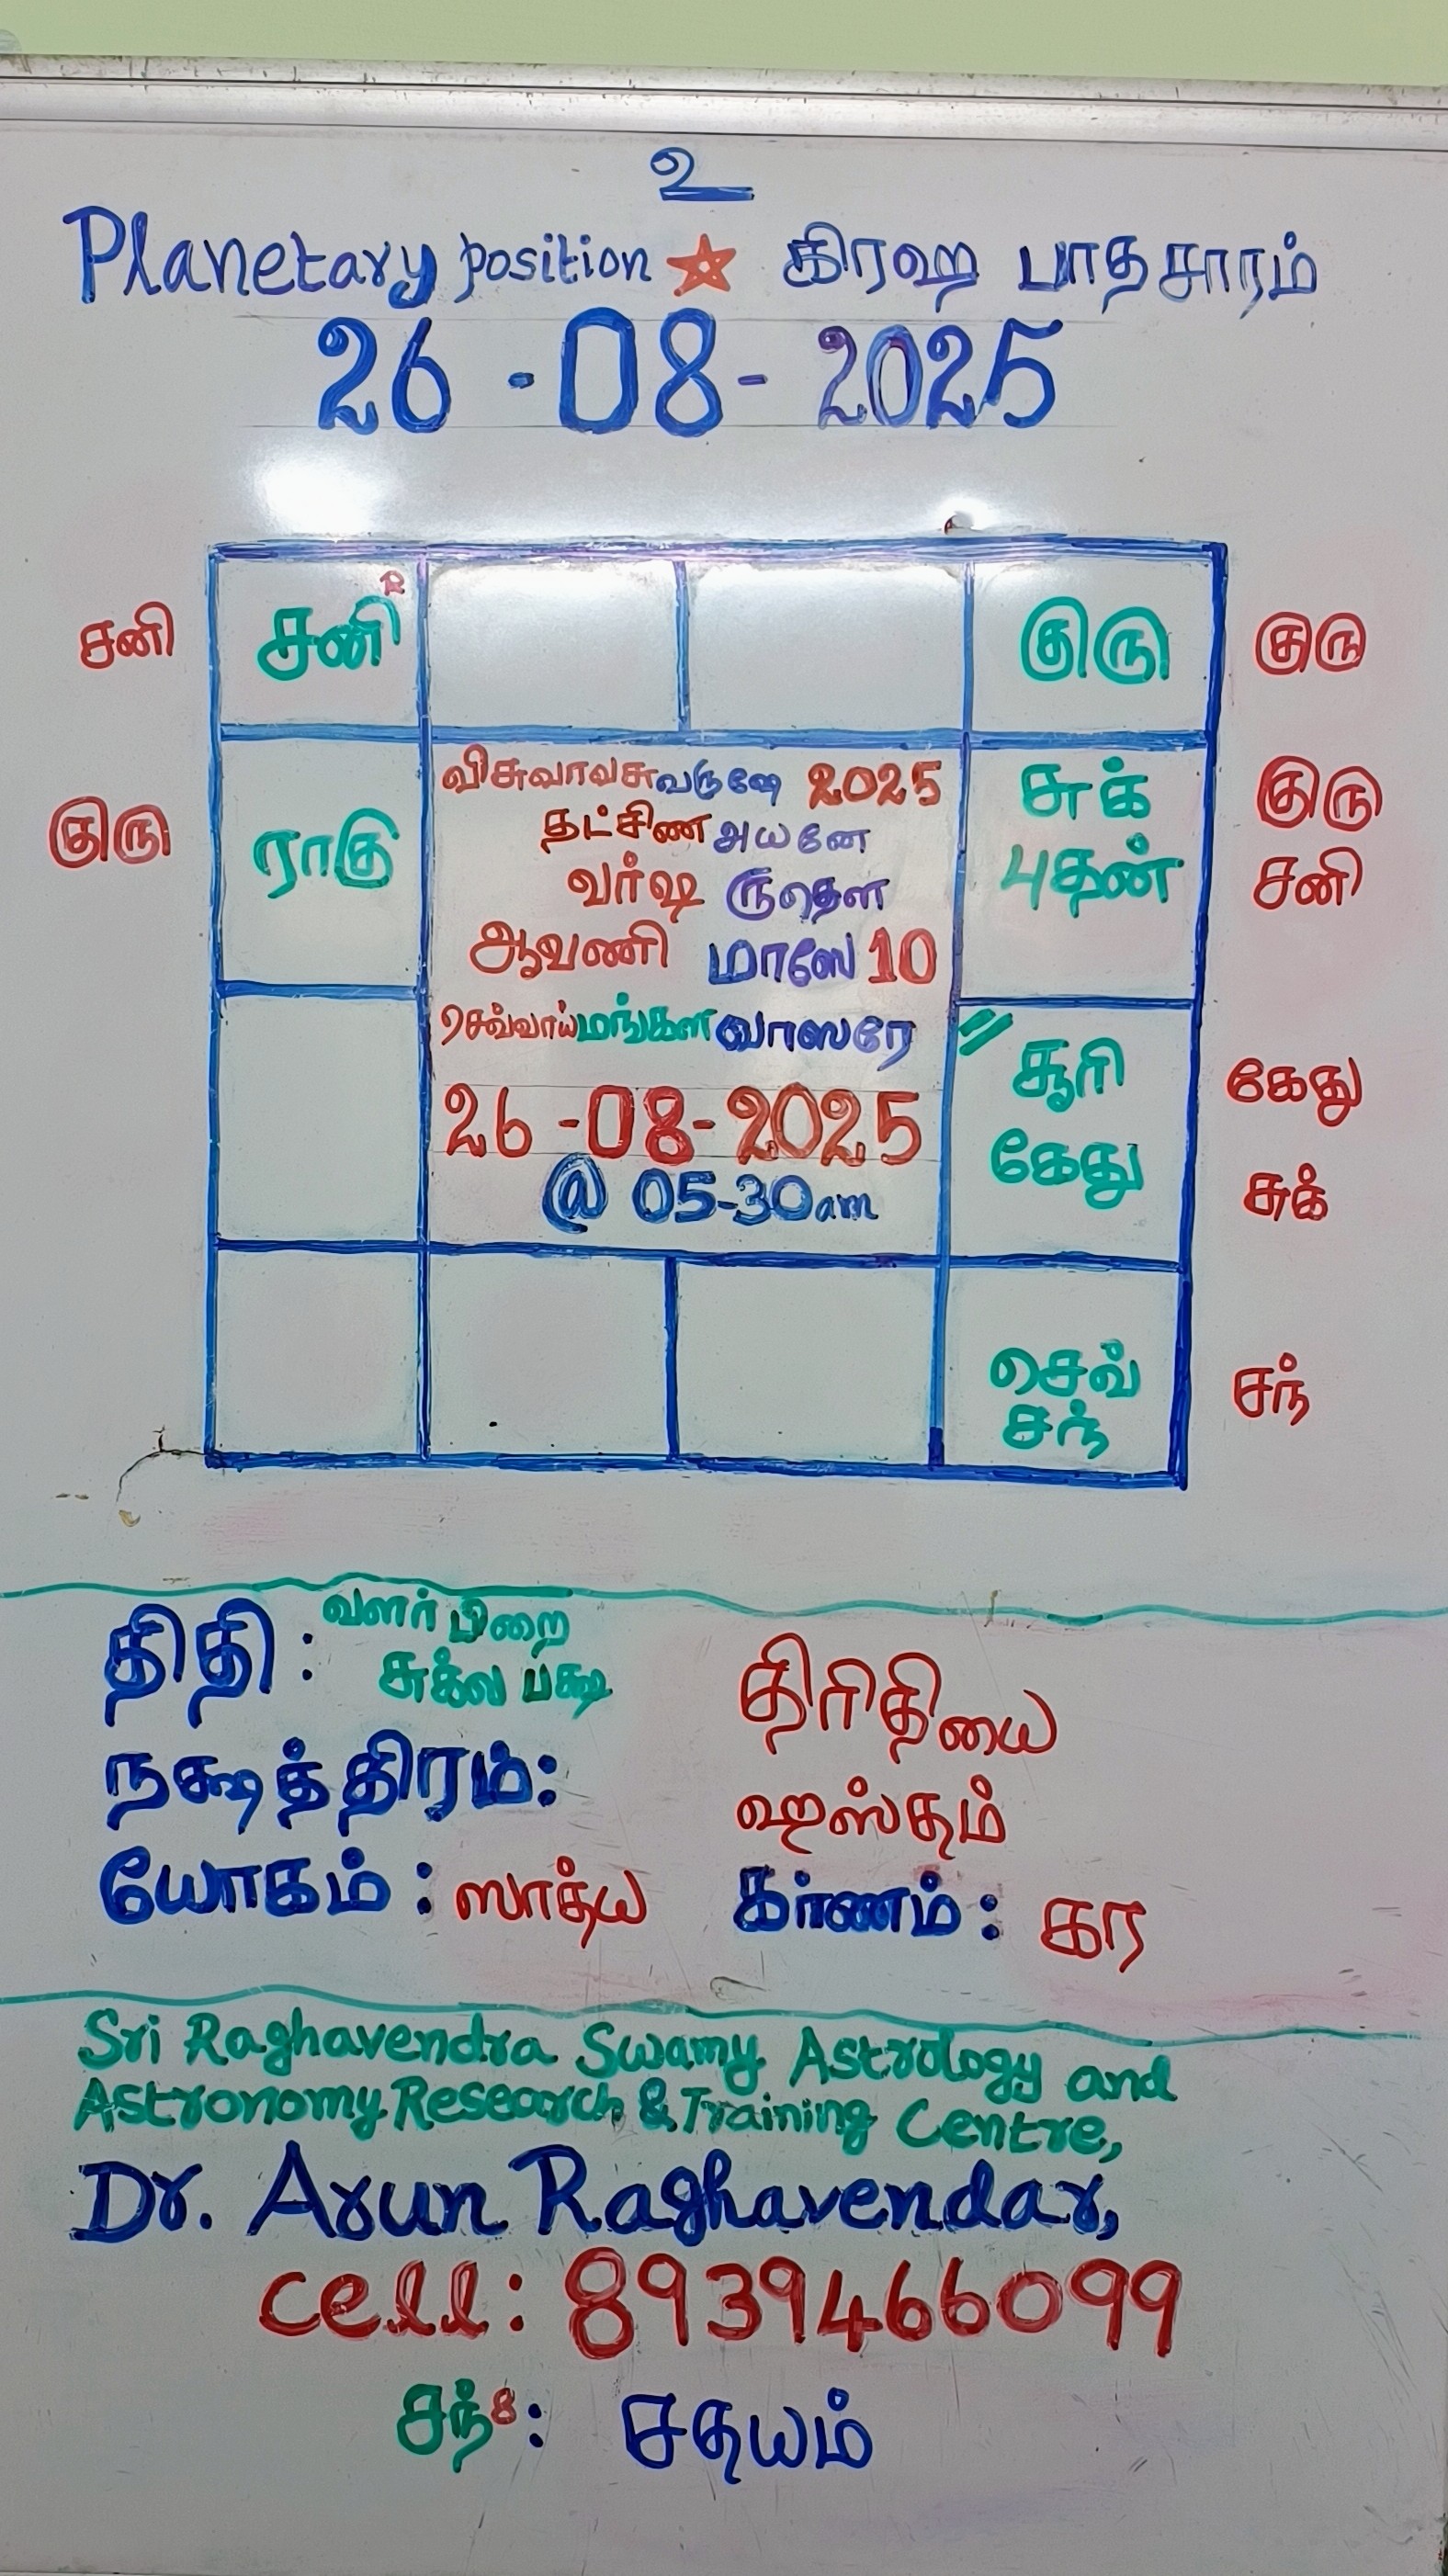 உ
Planetary position ☆ கிரஹ பாதசாரம்
26 - 08 - 2025
சனி சனி R குரு குரு
விசுவாவசுவருஷே 2025
சுக் குரு
தட்சிண அயனே
குரு ராகு புதன் சனி
வர்ஷ ருதௌ
ஆவணி மாஸே 10
செவ்வாய் மங்கள வாஸரே
சூரி கேது
26 - 08 - 2025
கேது சுக்
@ 05-30am
செவ் சந்
சந்
திதி : வளர்பிறை
சுக்ல பக்ஷ திரிதியை
நக்ஷத்திரம்: ஹஸ்தம்
யோகம் : ஸாத்ய கர்ணம் : கர
Sri Raghavendra Swamy Astrology and
Astronomy Research & Training Centre,
Dr. Arun Raghavendar,
cell: 8939466099
சந் 8 : சதயம்